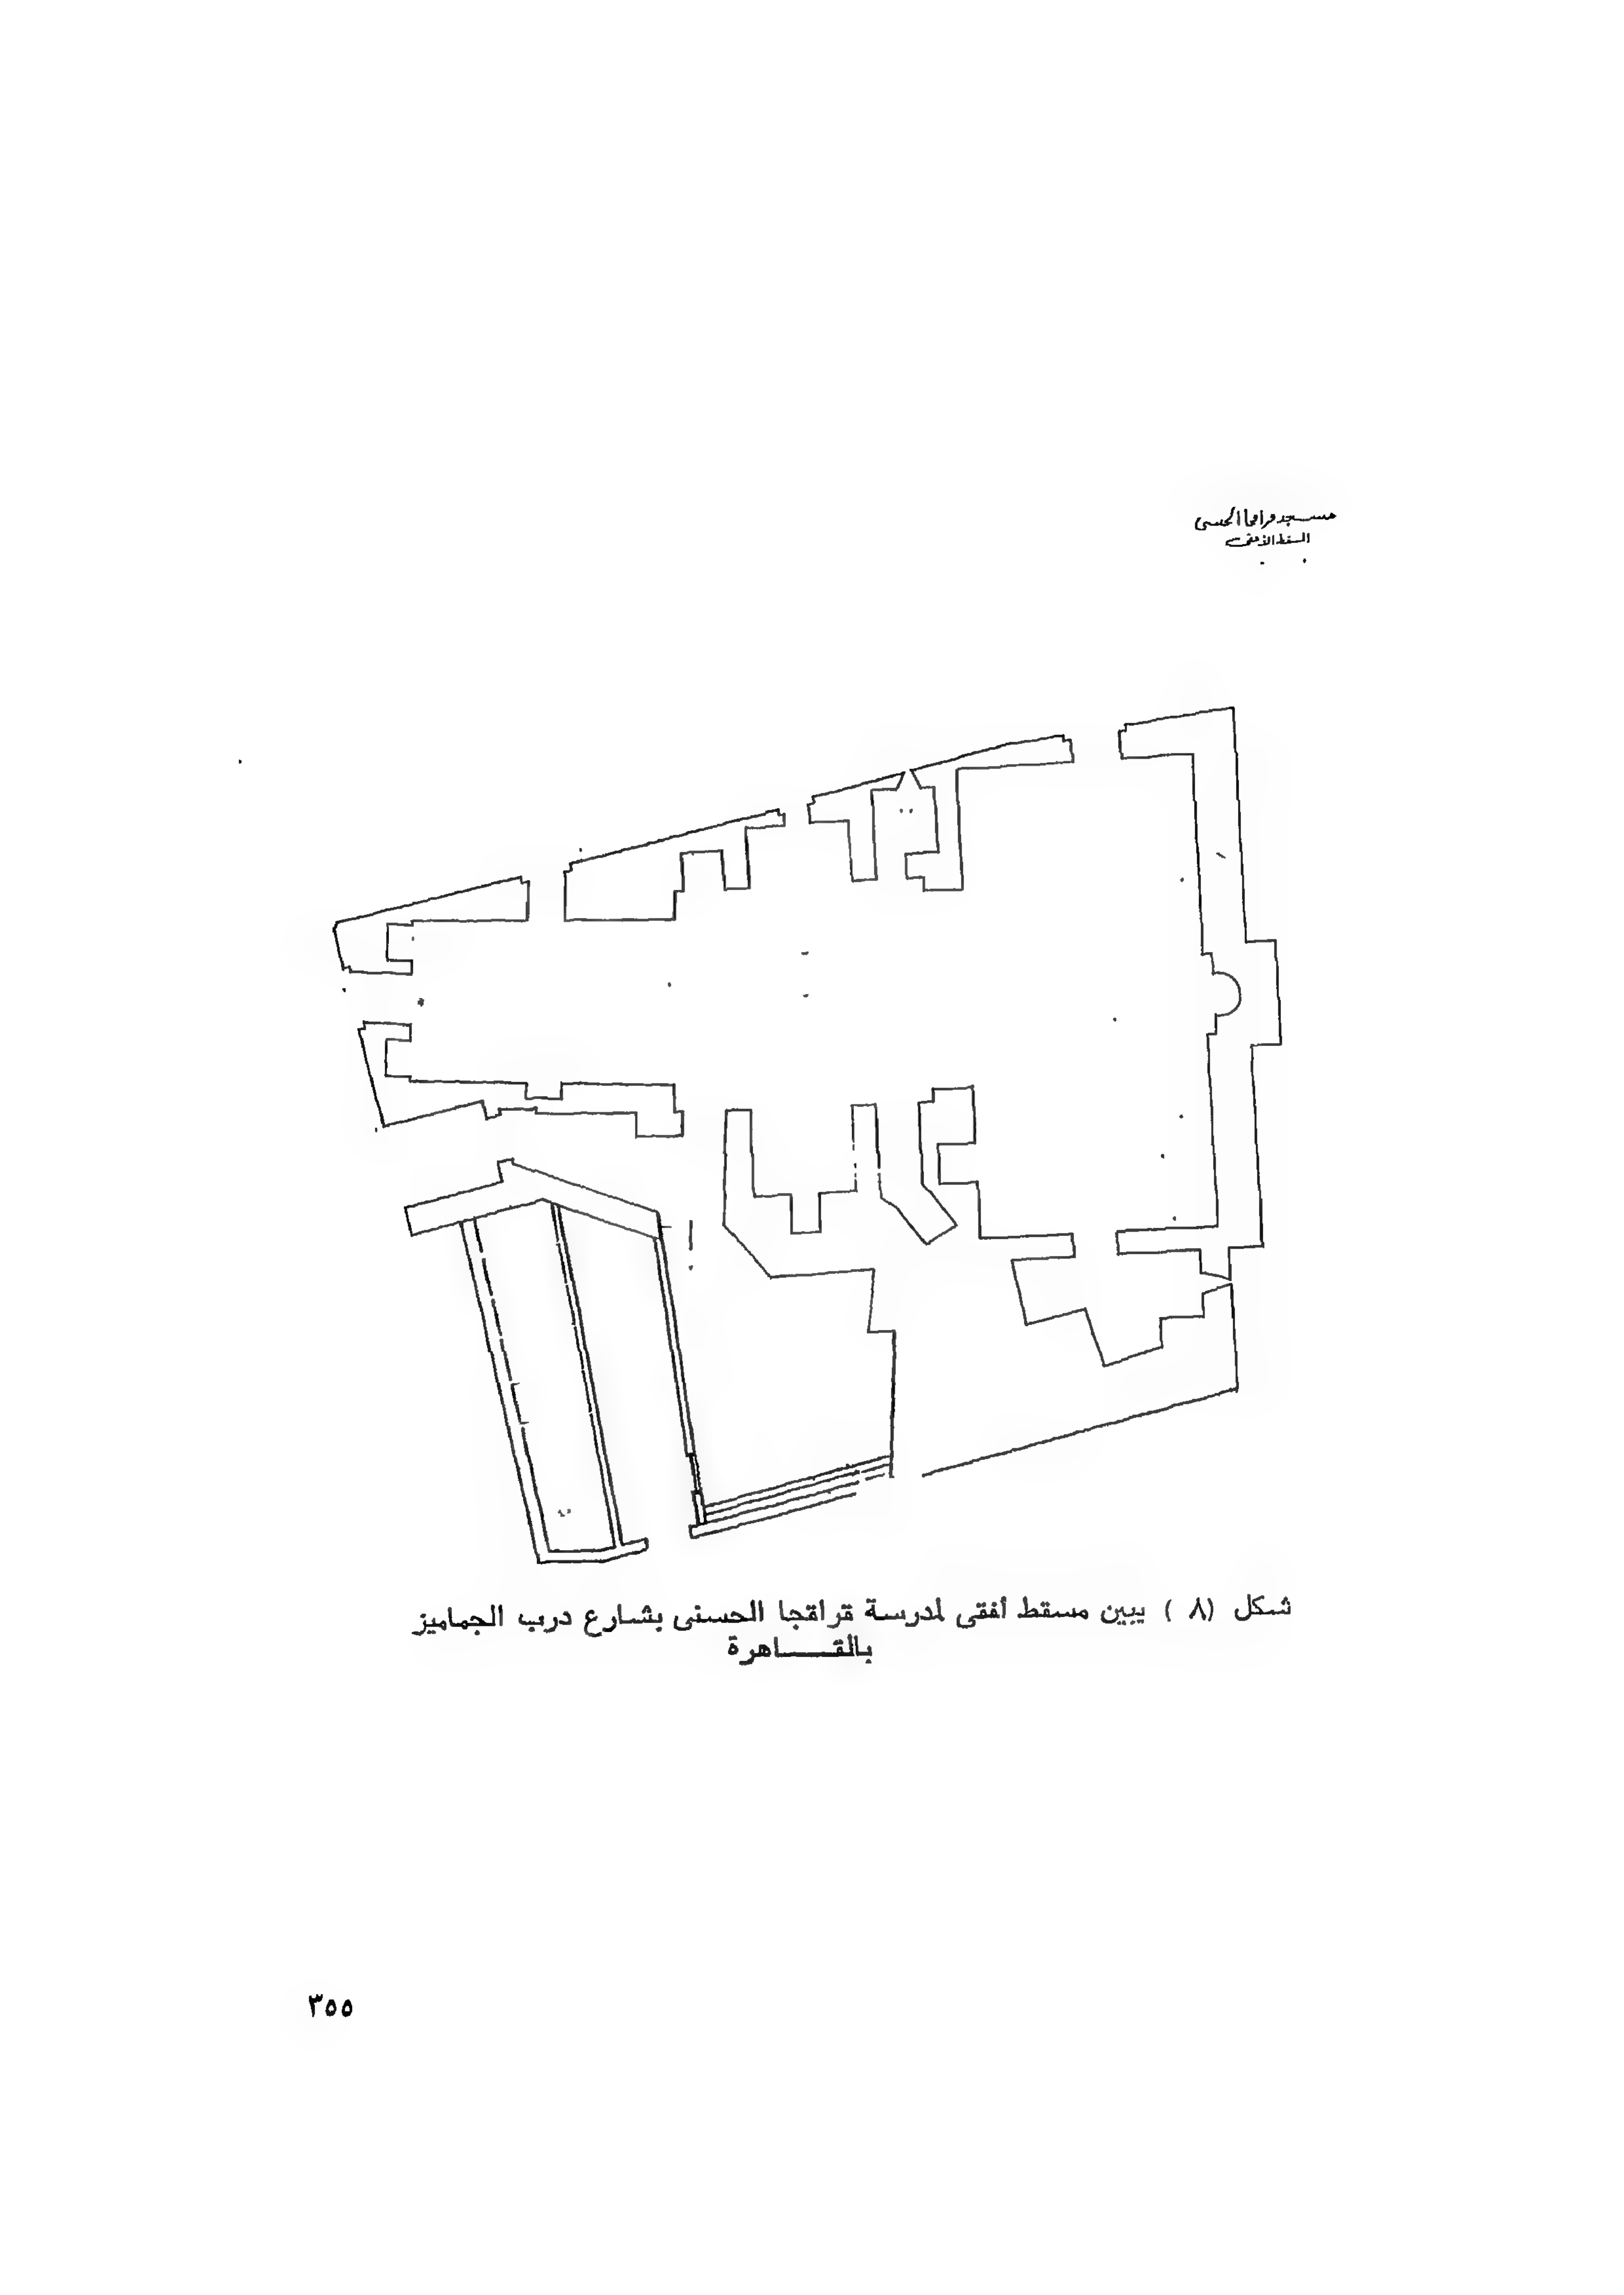 مسجد قراقجا الحسنى
المسقط الأفقى
شكل (٨ ) يبين مسقط أفقى لمدرسة قراقجا الحسنى بشارع درب الجماميز
بالقـــــاهرة
٣٥٥